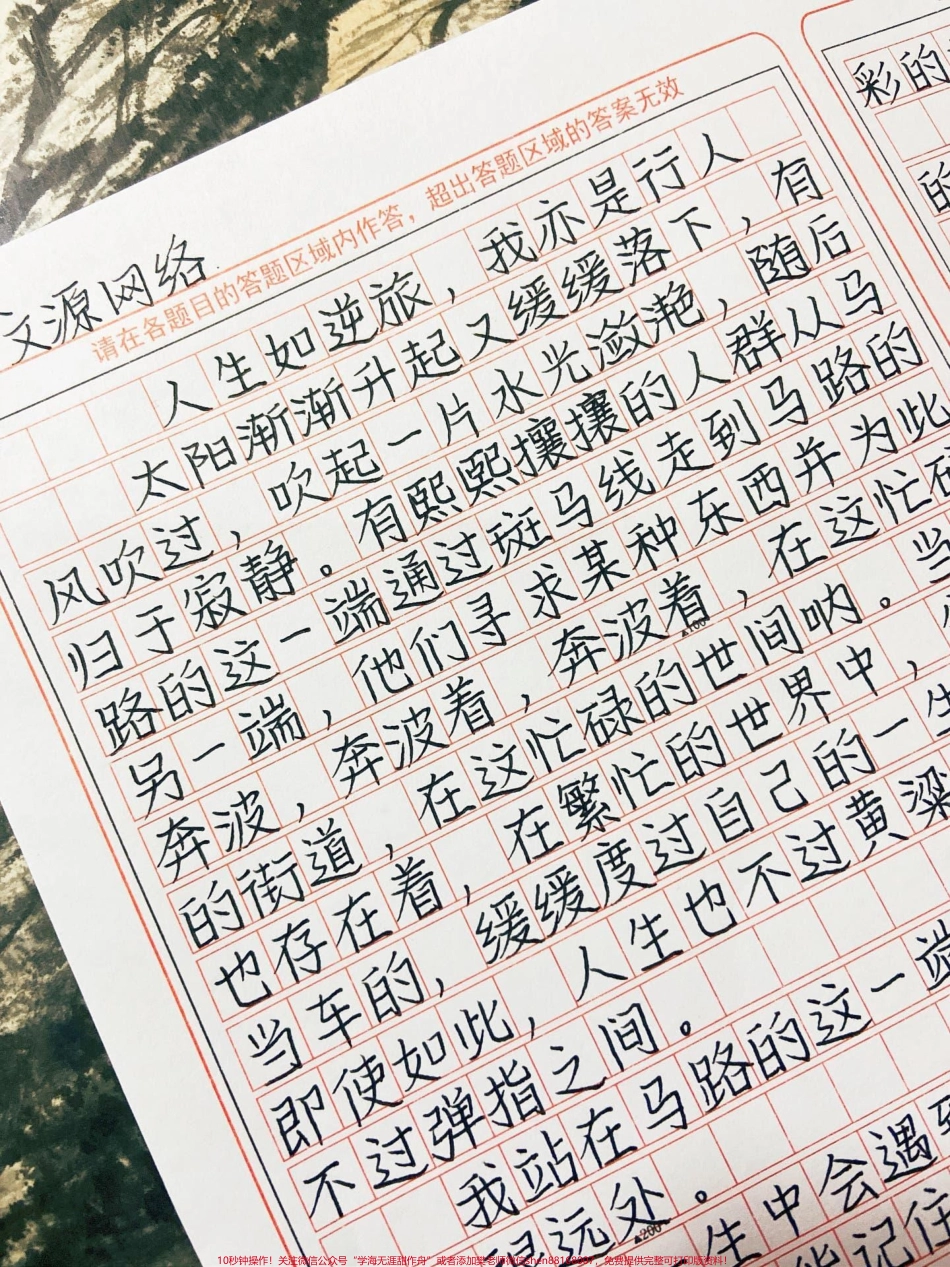 文源网络
请在各题目的答题区域内作答，超出答题区域的答案无效
人生如逆旅，我亦是行人
太阳渐渐升起又缓缓落下，有
风吹过，吹起一片水光潋滟，随后
归于寂静。有熙熙攘攘的人群从马
路的这一端通过斑马线走到马路的
另一端，他们寻求某种东西并为此
奔波，奔波着，奔波着，在这忙碌
▲100
的街道，在这忙碌的世间呐。当
也存在着，在繁忙的世界中，
当车的，缓缓度过自己的一生
即使如此，人生也不过黄粱
不过弹指之间。
我站在马路的这一端
远处。
▲200
生中会遇到
记住
彩的
的
10秒钟操作！关注微信公众号“学海无涯甜作舟”或者添加樊老师微信 ，免费提供完整可打印版资料！